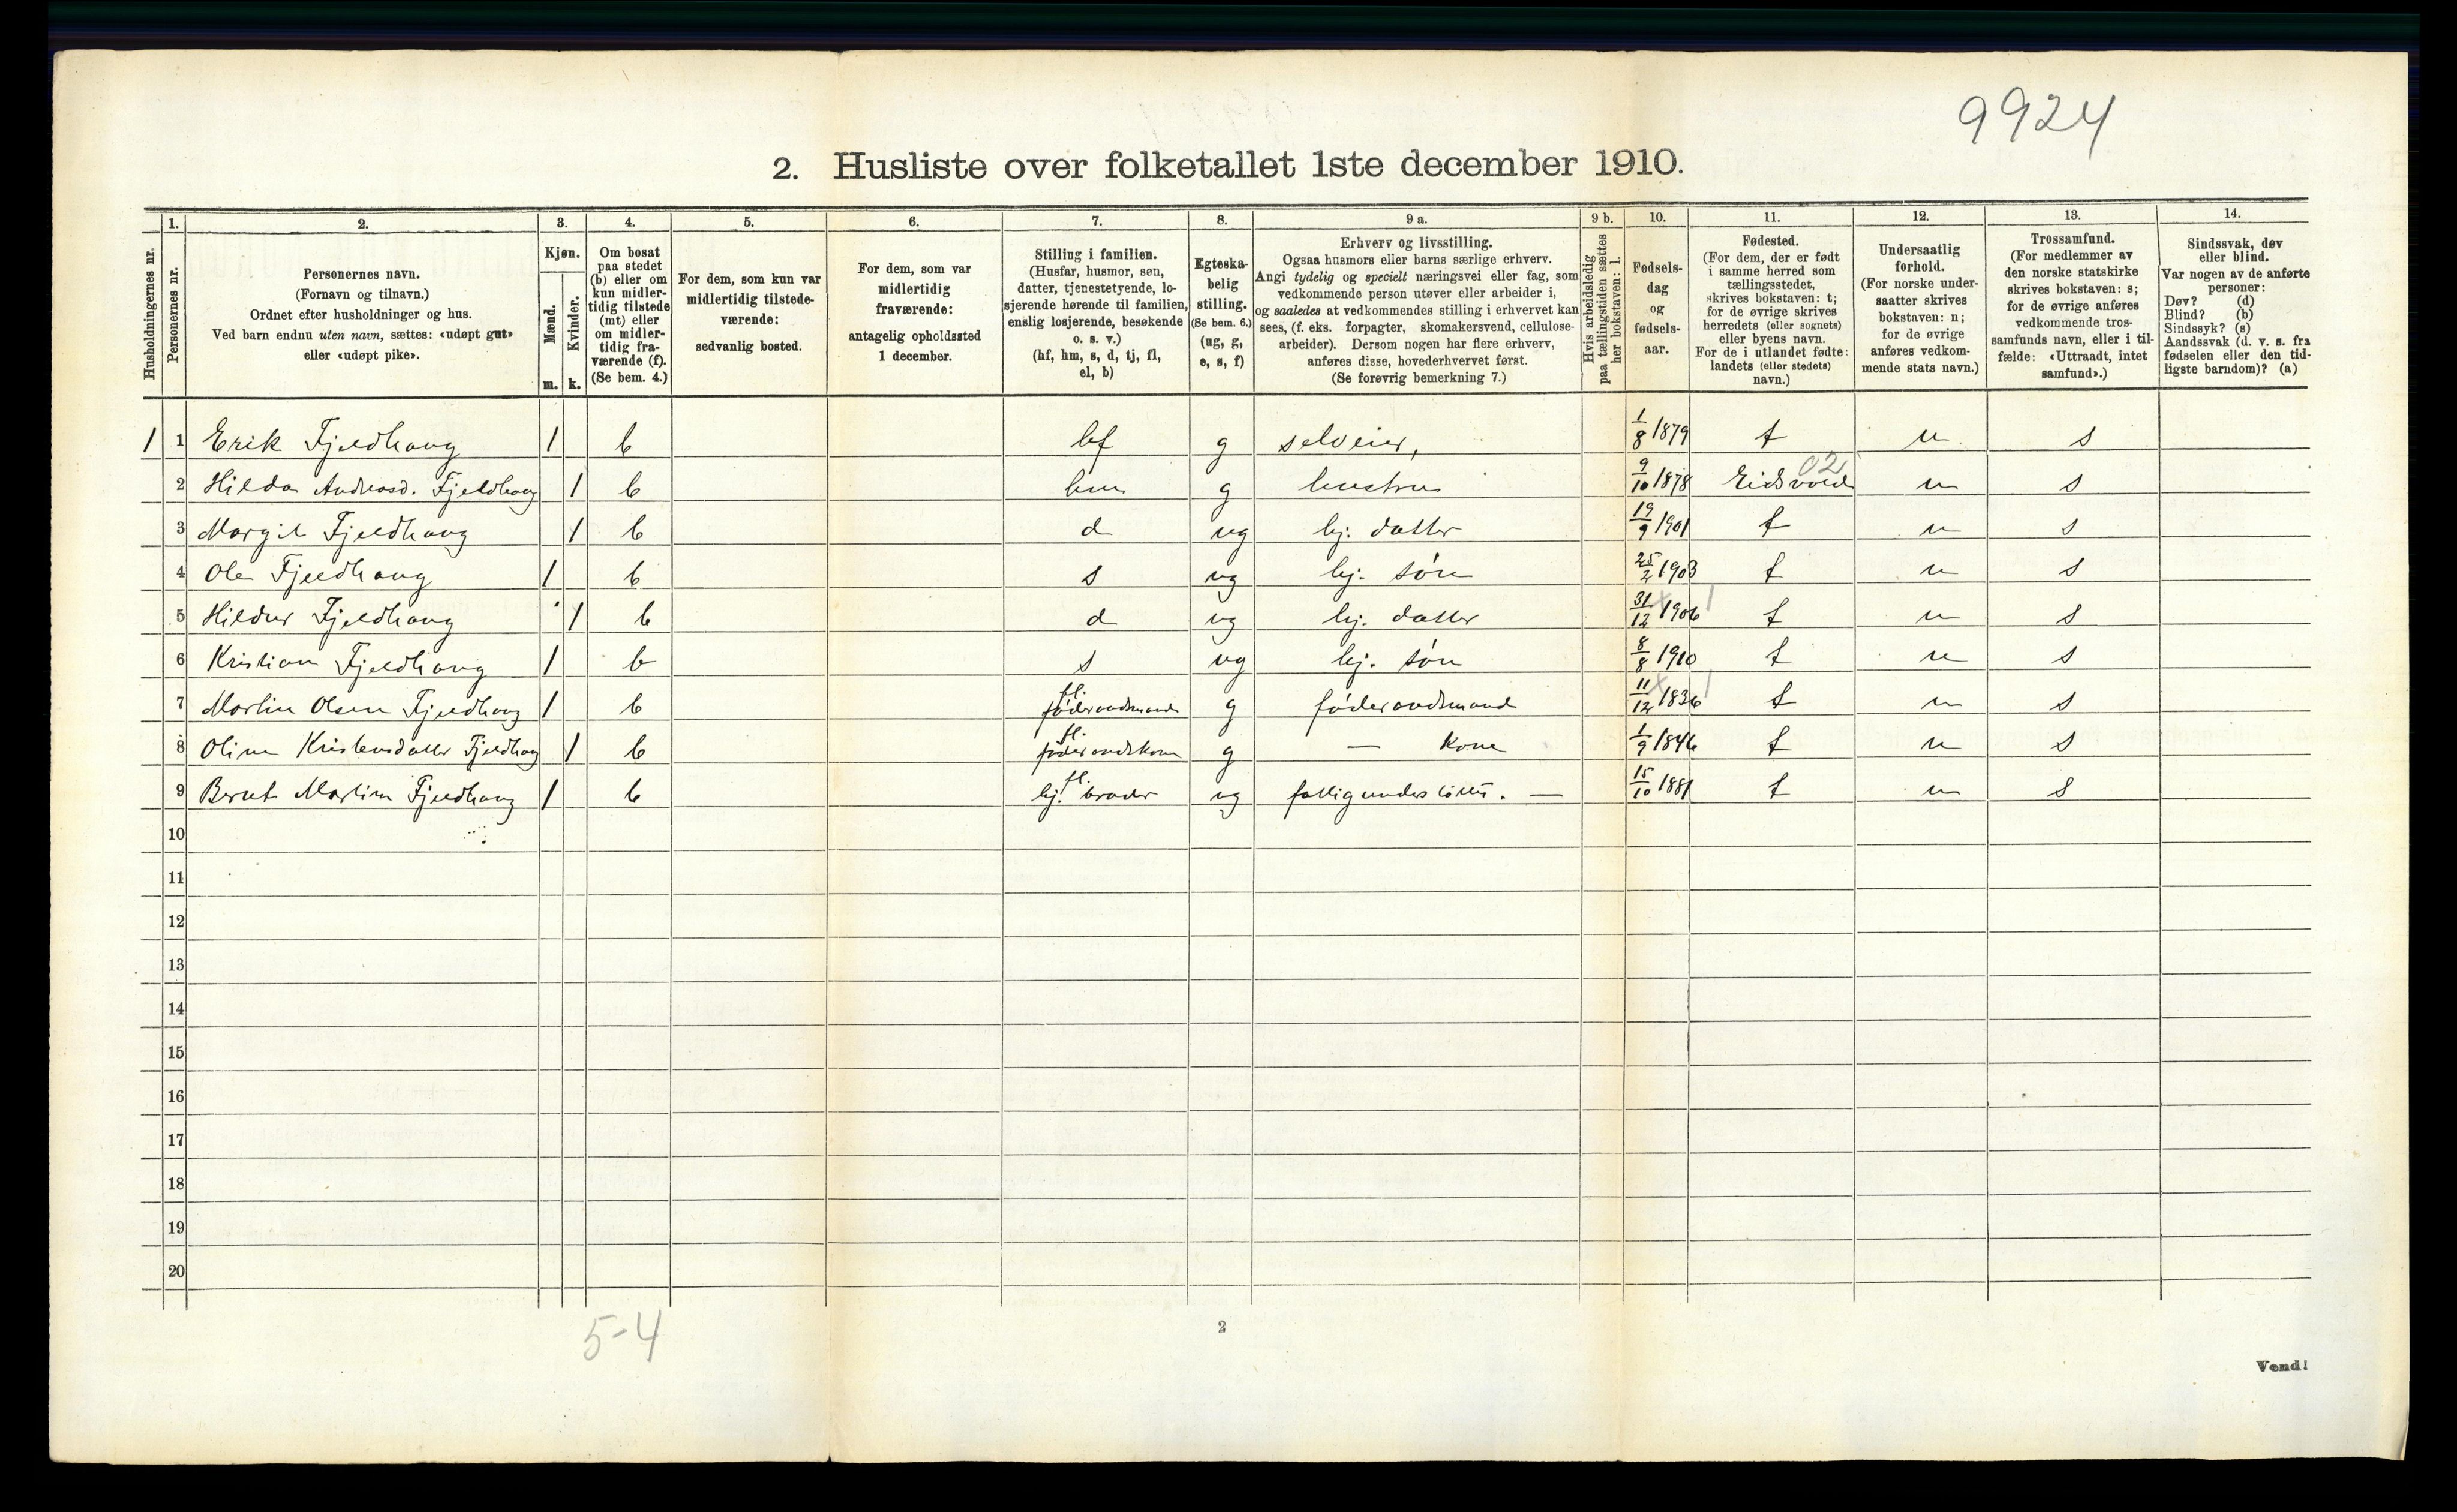 9924
2. Husliste over folketallet 1ste december 1910.
Husholdningernes nr.
1.
Personernes nr.
2.
Personernes navn.
(Fornavn og tilnavn.)
Ordnet efter husholdninger og hus.
Ved barn endnu uten navn, sættes: «udøpt gut»
eller «udøpt pike».
3.
Kjøn.
Mænd.
Kvinder.
m. k.
4.
Om bosat
paa stedet
(b) eller om
kun midler-
tidig tilstede
(mt) eller
om midler-
tidig fra-
værende (f).
(Se bem. 4.)
5.
For dem, som kun var
midlertidig tilstede-
værende:
sedvanlig bosted.
6.
For dem, som var
midlertidig
fraværende:
antagelig opholdssted
1 december.
7.
Stilling i familien.
(Husfar, husmor, søn,
datter, tjenestetyende, lo-
sjerende hørende til familien,
enslig losjerende, besøkende
o. s. v.)
(hf, hm, s, d, tj, fl,
el, b)
8.
Egteska-
belig
stilling.
(Se bem. 6.)
(ug, g,
e, s, f)
9 a.
Erhverv og livsstilling.
Ogsaa husmors eller barns særlige erhverv.
Angi tydelig og specielt næringsvei eller fag, som
vedkommende person utøver eller arbeider i,
og saaledes at vedkommendes stilling i erhvervet kan
sees, (f. eks. forpagter, skomakersvend, cellulose-
arbeider). Dersom nogen har flere erhverv,
anføres disse, hovederhvervet først.
(Se forøvrig bemerkning 7.)
9 b.
Hvis arbeidsledig
paa tællingstiden sættes
her bokstaven: l.
10.
Fødsels-
dag
og
fødsels-
aar.
11.
Fødested.
(For dem, der er født
i samme herred som
tællingsstedet,
skrives bokstaven: t;
for de øvrige skrives
herredets (eller sognets)
eller byens navn.
For de i utlandet fødte:
landets (eller stedets)
navn.)
12.
Undersaatlig
forhold.
(For norske under-
saatter skrives
bokstaven: n;
for de øvrige
anføres vedkom-
mende stats navn.)
13.
Trossamfund.
(For medlemmer av
den norske statskirke
skrives bokstaven: s;
for de øvrige anføres
vedkommende tros-
samfunds navn, eller i til-
fælde: «Uttraadt, intet
samfund».)
14.
Sindssvak, døv
eller blind.
Var nogen av de anførte
personer:
Døv? (d)
Blind? (b)
Sindssyk? (s)
Aandssvak (d. v. s. fra
fødselen eller den tid-
ligste barndom)? (a)
1 1 Erik Fjeldhaug 1 b hf g selveier, 1/8 1879 t n s
2 Hilda Andreasd. Fjeldhaug 1 b hm g hustru 9/10 1878 Eidsvold 02 n s
3 Margit Fjeldhaug 1 b d ug hj. datter 19/9 1901 t n s
4 Ole Fjeldhaug 1 b s ug hj. søn 25/2 1903 t n s
5 Hildur Fjeldhaug 1 b d ug hj. datter 31/12 1906 t n s
6 Kristian Fjeldhaug 1 b s ug hj. søn 8/8 1910 t n s
7 Martin Olsen Fjeldhaug 1 b fl. føderaadsmand g føderaadsmand 11/12 1836 t n s
8 Oline Kristensdatter Fjeldhaug 1 b fl. føderaadskone g — Kone 1/9 1846 t n s
9 Bernt Martin Fjeldhaug 1 b fl. hj. broder ug fattigunderstøttet. — 15/10 1881 t n s
10
11
12
13
14
15
16
17
18
19
20
5-4
2
Vend!